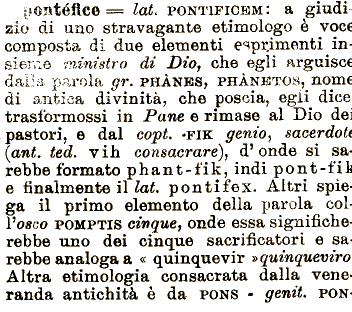 pontéfice = lat. PONTIFICEM: a giudi-
zio di uno stravagante etimologo è voce
composta di due elementi esprimenti in-
sieme ministro di Dio, che egli arguisce
dalla parola gr. PHÀNES, PHÀNETOS, nome
di antica divinità, che poscia, egli dice
trasformossi in Pane e rimase al Dio dei
pastori, e dal copt. -FIK genio, sacerdote
(ant. ted. vih consacrare), d' onde si sa-
rebbe formato phant-fik, indi pont-fik
e finalmente il lat. pontifex. Altri spie-
ga il primo elemento della parola col-
l'osco POMPTIS cinque, onde essa significhe-
rebbe uno dei cinque sacrificatori e sa-
rebbe analoga a « quinquevir » quinqueviro
Altra etimologia consacrata dalla vene-
randa antichità è da PONS - genit. PON-